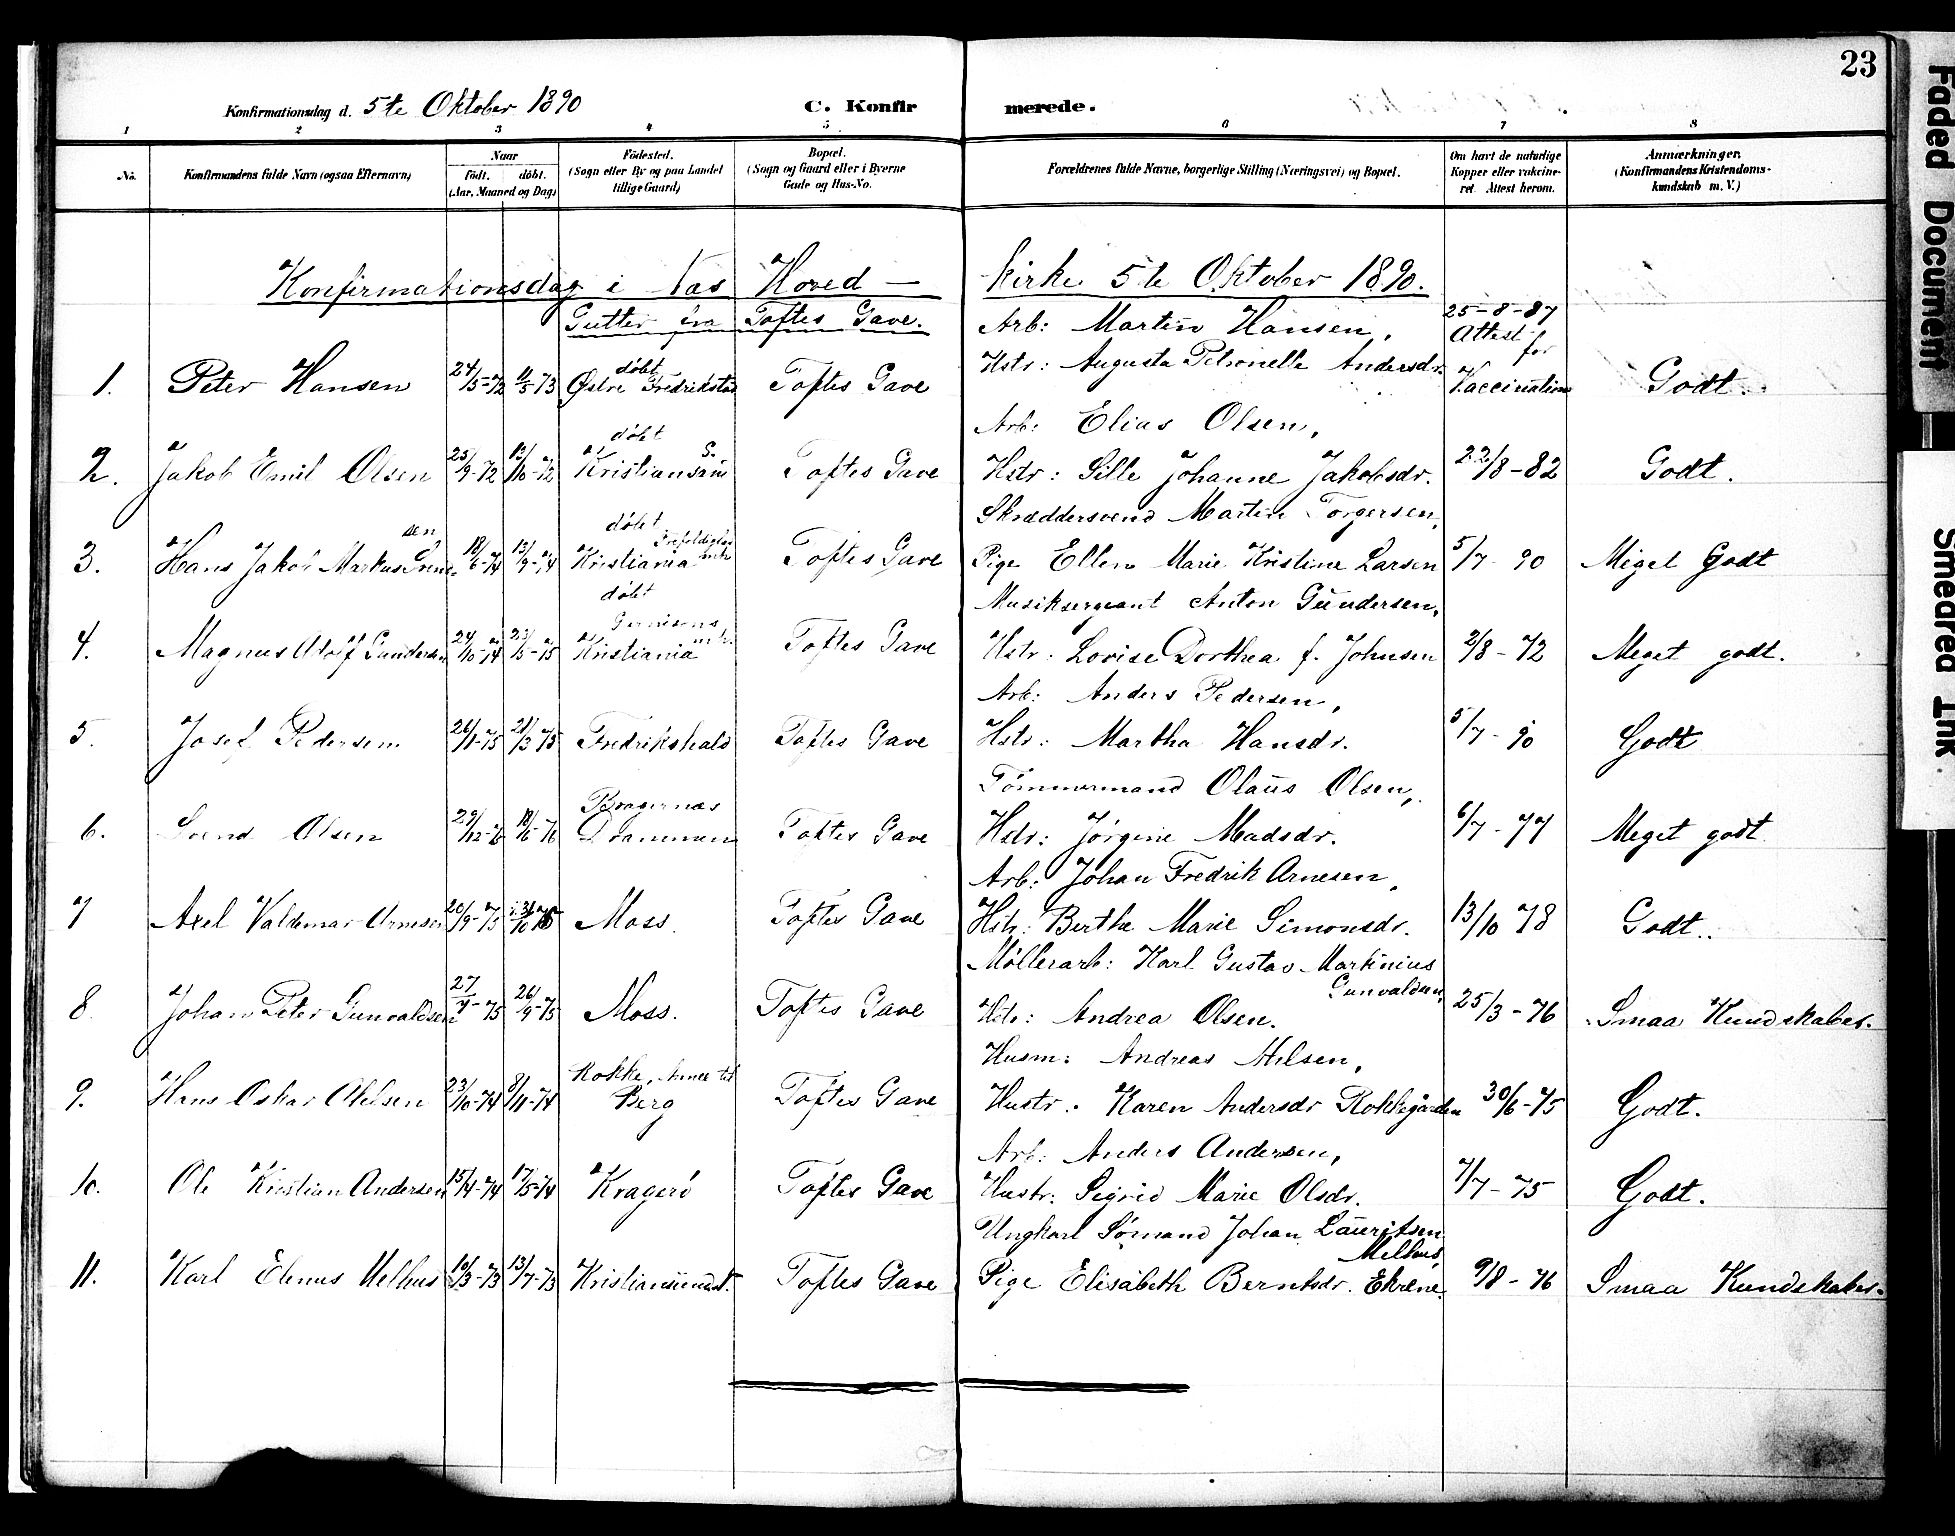 23
Konfirmationsdag d. 5te Oktober 1890
C. Konfirmerede.
1 2 3 4 5 6 7 8
No. Konfirmandens fulde Navn (ogsaa Efternavn) Naar født. døbt. (Aar, Maaned og Dag) Fødested. (Sogn eller By og paa Landet tillige Gaard) Bopæl. (Sogn og Gaard eller i Byerne Gade og Hus-No. Forældrenes fulde Navne, borgerlige Stilling (Næringsvei) og Bopæl. Om havt de naturlige Kopper eller vakcineret. Attest herom. Anmærkninger. (Konfirmandens Kristendomskundskab m. V.)
Konfirmationsdag i Nas Hoved – kirke 5te Oktober 1890.
Gutter fra Toftes Gave.
Arb: Martin Hansen, 25-8-87
Attest for
1. Peter Hansen 24/5-72 11/5-73 døbt Østre Fredrikstad Toftes Gave Hstr: Augusta Petronelle Andersdr. Vaccination Godt.
Arb: Elias Olsen,
2. Jakob Emil Olsen 25/9-72 13/10-72 døbt Kristiansand S. Toftes Gave Hstr: Sille Johanne Jakobsdr. 22/8-82 Godt.
Skræddersvend Martin Torgersen,
3. Hans Jakob Markus 18/6-74 13/9-74 døbt Kristiania Toftes Gave Pige Ellen Marie Kristine Larsen 5/7-90 Miget Godt
Musiksergeant Anton Gundersen,
4. Magnus Adolf Gundersen 24/10-74 23/5-75 døbt Garnisons Kristiania Toftes Gave Hstr: Lovise Dorthea f. Johnsen 2/8-72 Meget godt.
Arb: Anders Pedersen,
5. Josef Pedersen 26/1-75 21/3-75 Fredrikshald Toftes Gave Hstr: Martha Hansdr. 5/7-90 Godt
Tömmermand Olaus Olsen,
6. Svend Olsen 29/12-76 18/6-76 Bragernæs Drammen Toftes Gave Hstr: Jørgine Madsdr. 6/7-77 Meget godt
Arb: Johan Fredrik Arnesen,
7 Axel Valdemar Arnesen 20/9-75 31/10 75 Moss. Toftes Gave Hstr: Berthe Marie Simonsdr. 13/10 78 Godt.
Møllerarb: Karl Gustav Martinius Gunvaldsen,
8. Johan Peter Gunvaldsen 27/7-75 26/9-75 Moss. Toftes Gave Hstr: Andrea Olsen. 25/3-76 Smaa Kundskaber.
Husm: Andreas
9. Hans Oskar 23/10-74 8/11-74 Rokke, Berg Toftes Gave Hustr: Karen Andersdr Rokkegården 30/6-75 Godt.
Arb: Anders Andersen,
10. Ole Kristian Andersen 15/4-74 17/5-74 Kragerö Toftes Gave Hustr: Sigrid Marie Olsdr. 7/7-75 Godt.
Ungkarl Sømand Johan Lauritsen Melhus,
11. Karl Elenus Melhus 10/3-73 13/7-73 Kristianssund Toftes Gave Pige Elisabeth Berntsdr. Ekrene. 9/8-76 Smaa Kundskaber.
Faded Document
Smeared Ink